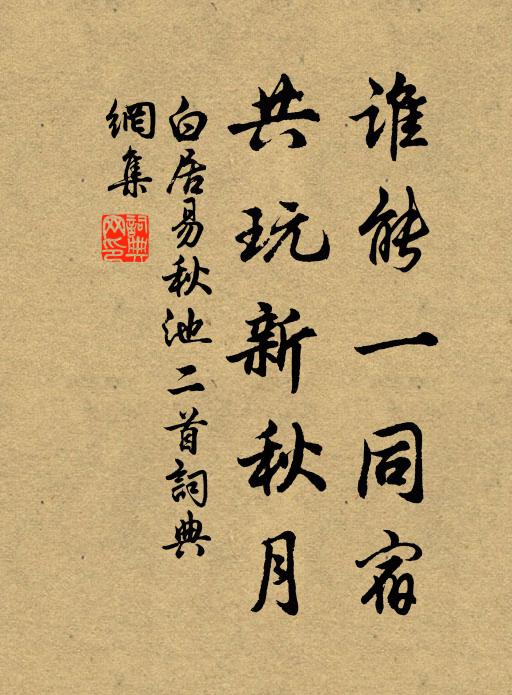 谁能一同宿
共玩新秋月
白居易秋池二首詞典
網集
詞典
网印